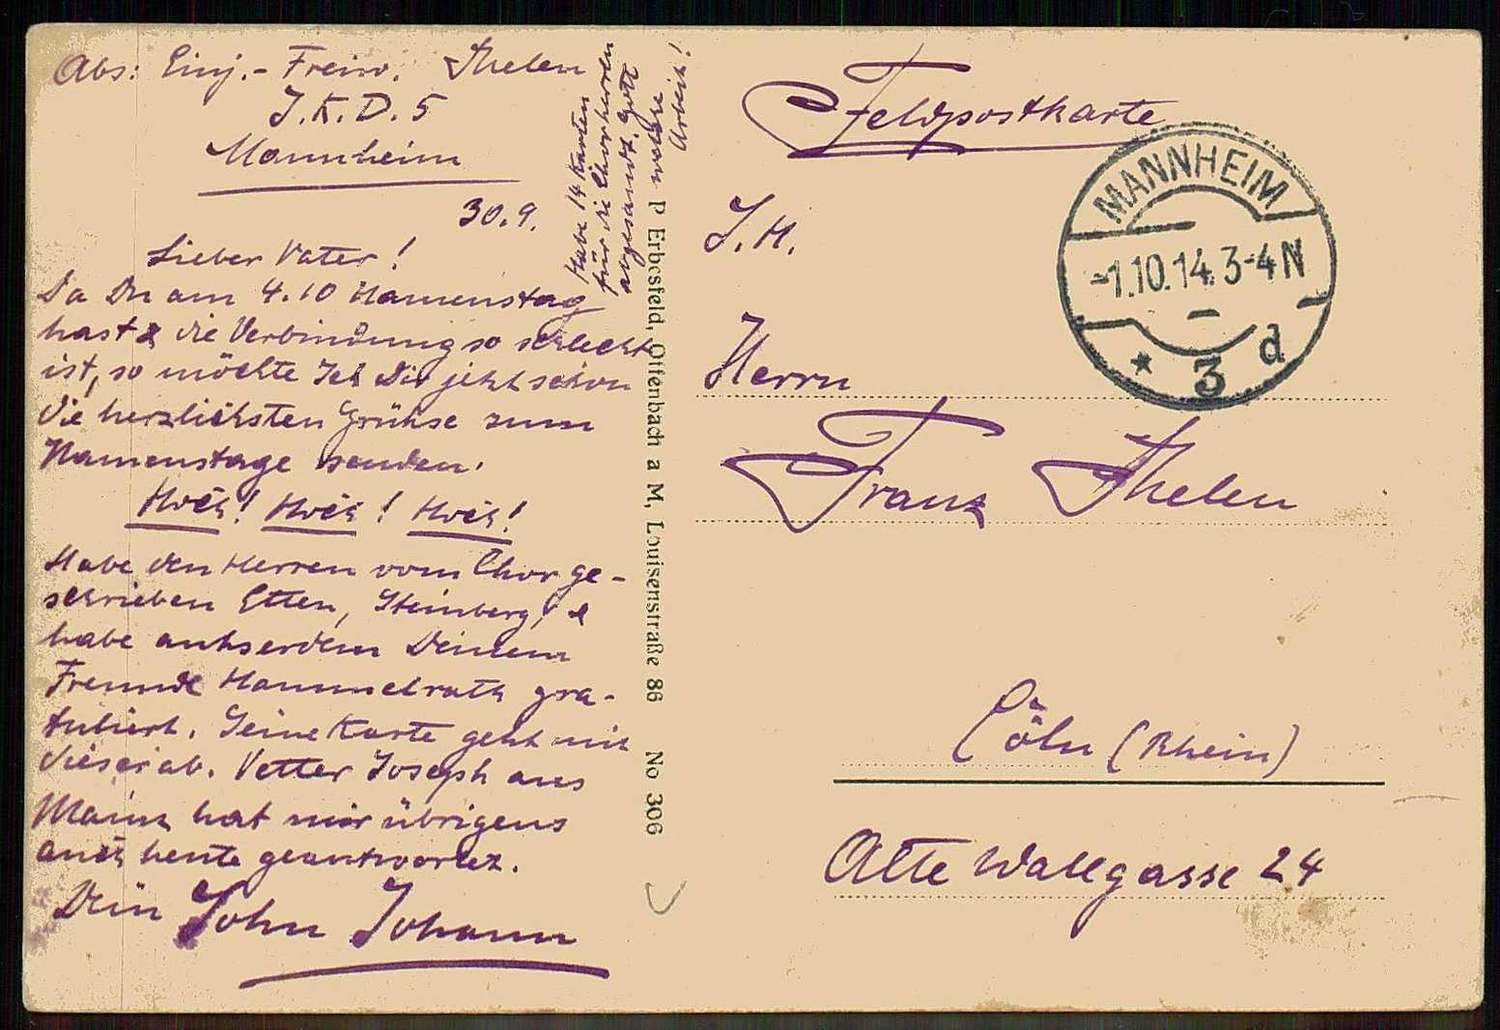 Abs: Einj.- Freiw. Thelen
J.K.D.5
Mannheim
30.9.
Lieber Vater!
Da Du am 4.10 Namenstag
hast & die Verbindung so schlecht
ist, so möchte Ich Dir jetzt schon
die herzlichsten Grühse zum
Namenstage senden.
Hoch! Hoch! Hoch!
Habe den Herren vom Chor ge-
schrieben Etten, Steinberg, &
habe auhserdem Deinem
Freunde Hammelrath gra-
tuliert. Seine Karte geht mit
dieser ab. Vetter Joseph aus
Mainz hat mir übrigens
auch heute geantwortet.
Dein Sohn Johann
Habe 14 Karten
für die Chorherren
abgesandt. Gott
welche
Arbeit!
P Erbesfeld, Offenbach a M, Louisenstraße 86 No 306
Feldpostkarte
MANNHEIM
-1.10.14.3-4N
* 3 d
S.H.
Herrn
Franz Thelen
Cöln (Rhein)
Alte Wallgasse 24